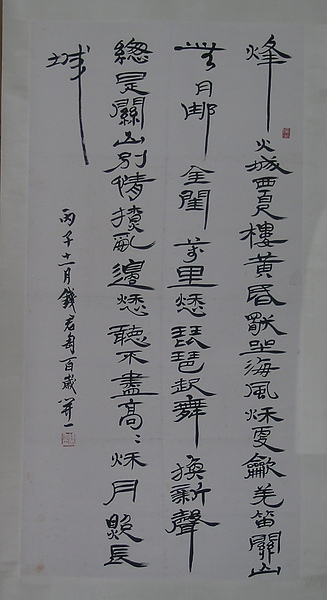 烽火城西百尺樓黃昏獨坐海風秌更龡羌笛關山
無月那金閨萬里愁琵琶起舞換新聲
總是關山別情撩亂邊愁聽不盡高〻秌月照長
城
丙子十一月錢君匋百歲開一